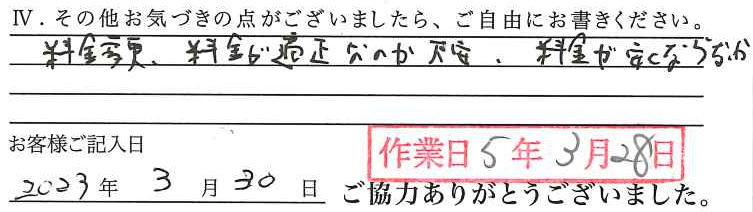 Ⅳ．その他お気づきの点がございましたら、ご自由にお書きください。
料金変更、料金が適正なのか不安、料金が安くならないか
お客様ご記入日
作業日 5年 3月28日
2023年 3月 30日 ご協力ありがとうございました。